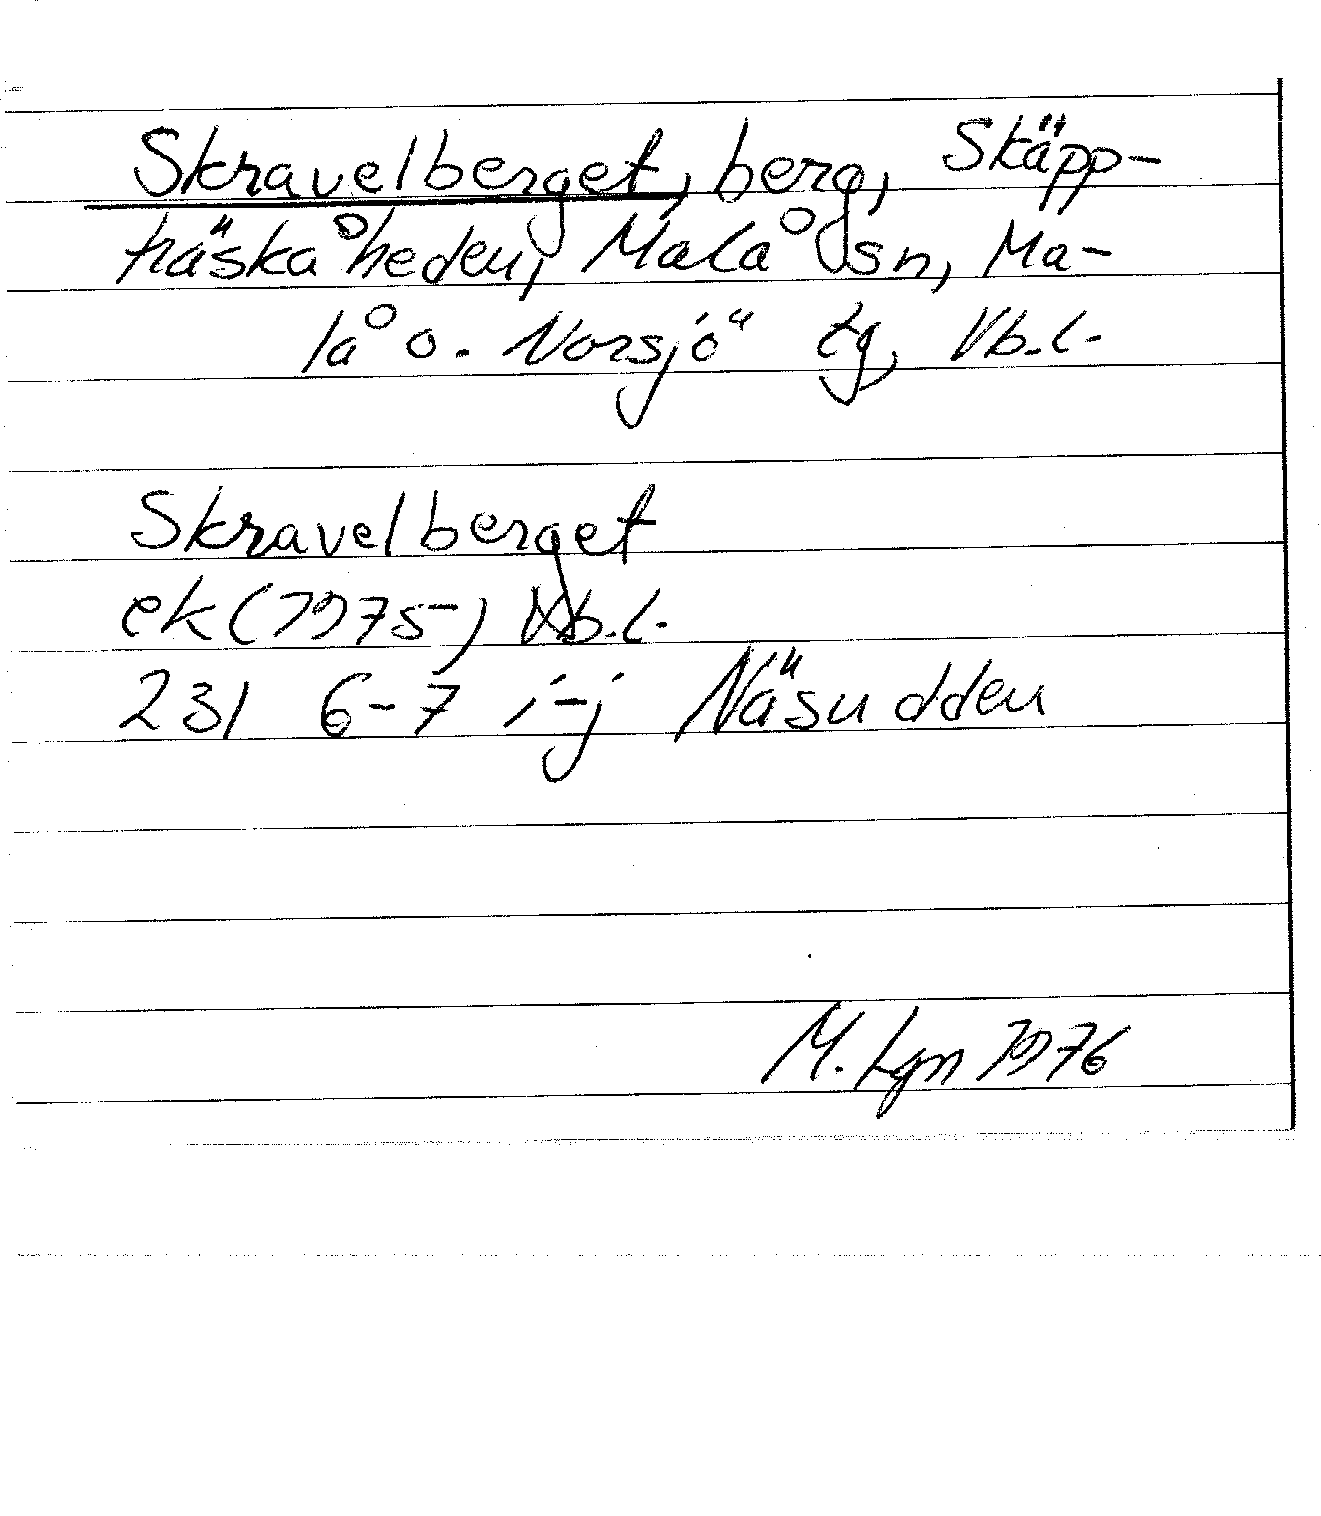 Skravelberget, berg, Skäpp-
träskåheden, Malå sn, Ma-
lå o. Norsjö tg, Vb.l.
Skravelberget
ek (1975) Vb.l.
231 6-7 i-j Näsudden
M. Lgn 1976